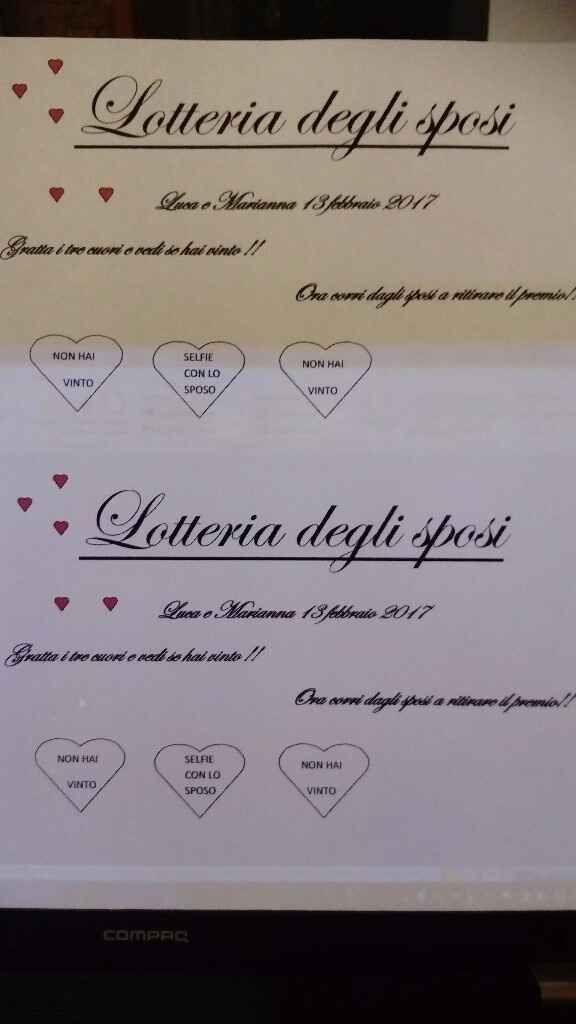 Lotteria degli sposi
Luca e Marianna 13 febbraio 2017
Gratta i tre cuori e vedi se hai vinto !!
Ora corri dagli sposi a ritirare il premio!!
NON HAI
VINTO
SELFIE
CON LO
SPOSO
NON HAI
VINTO
Lotteria degli sposi
Luca e Marianna 13 febbraio 2017
Gratta i tre cuori e vedi se hai vinto !!
Ora corri dagli sposi a ritirare il premio!!
NON HAI
VINTO
SELFIE
CON LO
SPOSO
NON HAI
VINTO
COMPAQ